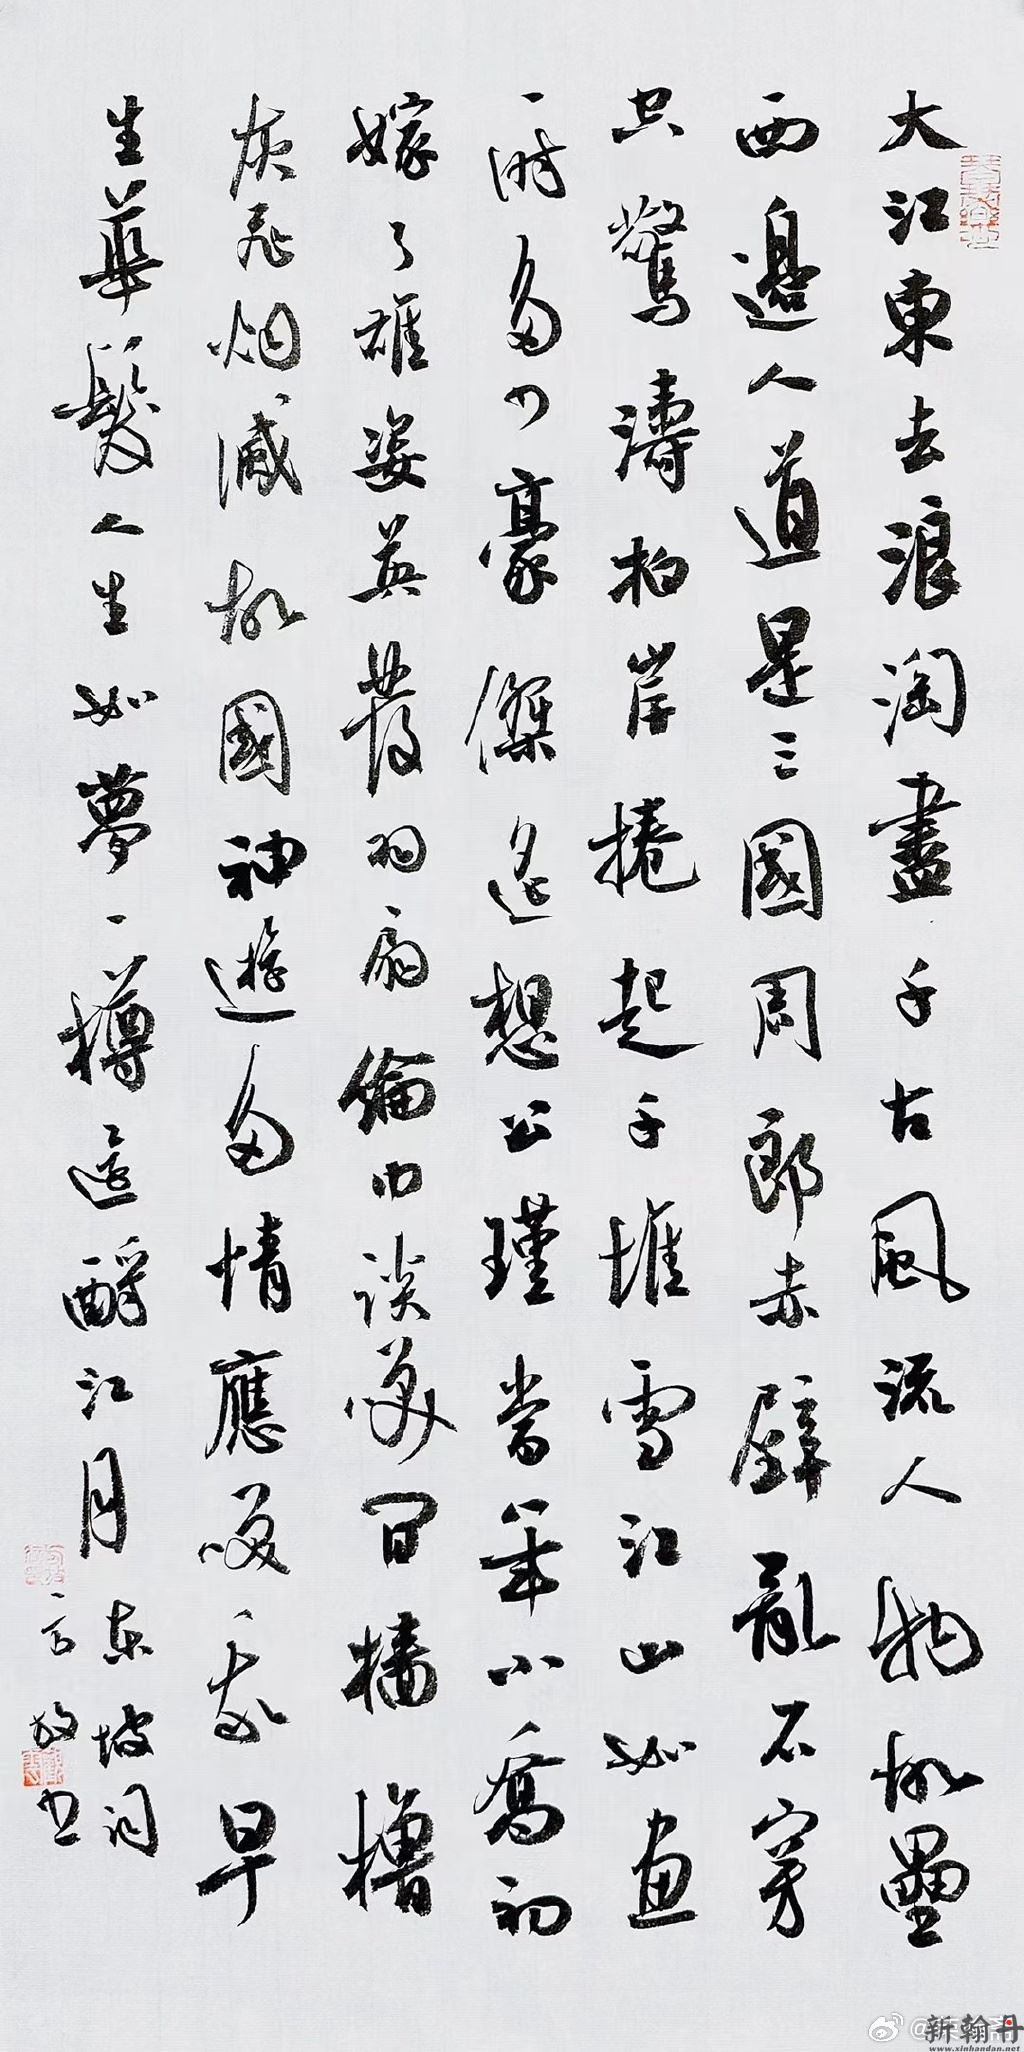 大江東去浪淘盡千古風流人物故壘
西邊人道是三國周郎赤壁亂石穿
空驚濤拍岸捲起千堆雪江山如画
一時多少豪傑遙想公瑾當年小喬初
嫁了雄姿英發羽扇綸巾談笑間檣櫓
灰飛烟滅故國神遊多情應笑我早
生華髮人生如夢一樽還酹江月
東坡詞
书
新翰丹
www.xinhandan.net